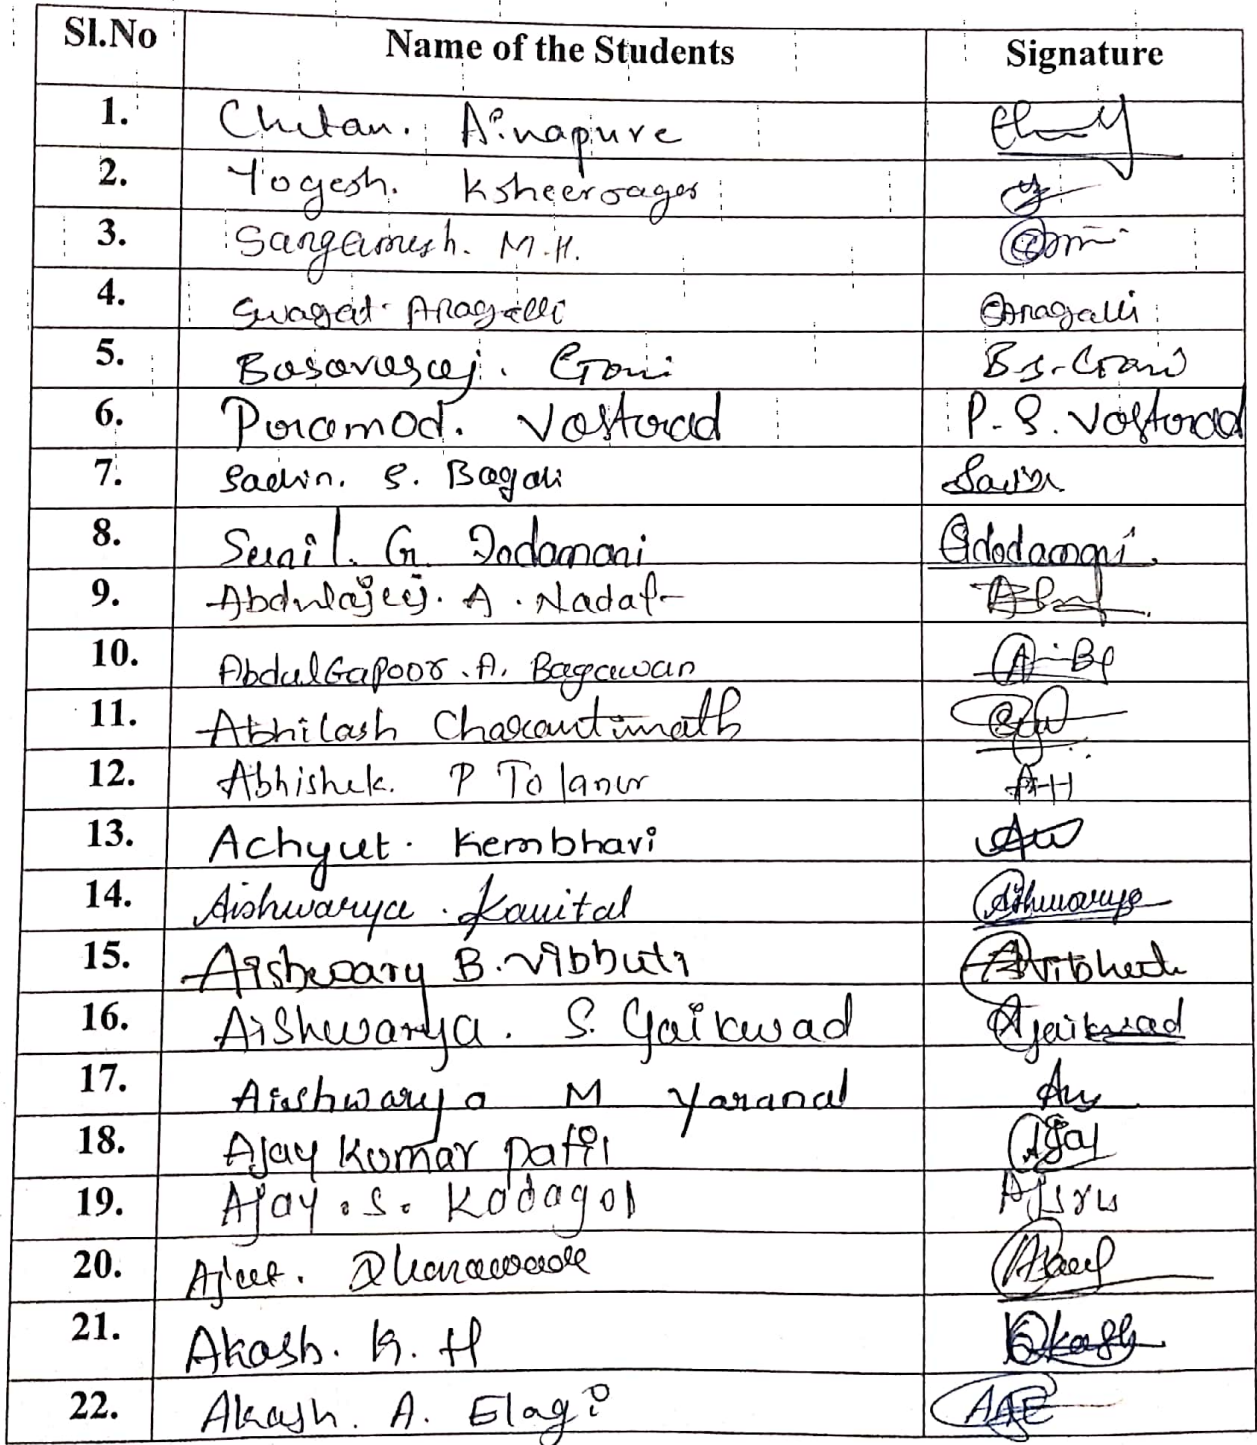 Sl.No Name of the Students Signature
1. Chetan. Ainapure
2. Yogesh. Ksheersagar
3. Sangamesh. M.H.
4. Swagat. Aragalli Aragalli
5. Basavaraj. Goni B.S. Goni
6. Poramod. Vastorad P.S. Vastorad
7. Sachin. S. Bagali Sachin
8. Sunil. G. Dodamani Gdodamani.
9. Abdulajeej. A. Nadaf
10. AbdulGafoor. A. Bagawan
11. Abhilash Charantimath
12. Abhishek. P Tolanur AH
13. Achyut. Kembhavi
14. Aishwarya. Kanital Aishwarya
15. Aishwary B. Vibhuti
16. Aishwarya. S. Gaikwad Agaikwad
17. Aishwarya M Yaranal
18. Ajay Kumar Patil Ajay
19. Ajay. S. Kodagol
20. Ajeet. Dhanawade
21. Akash. K. H Akash
22. Akash. A. Elagi AAE